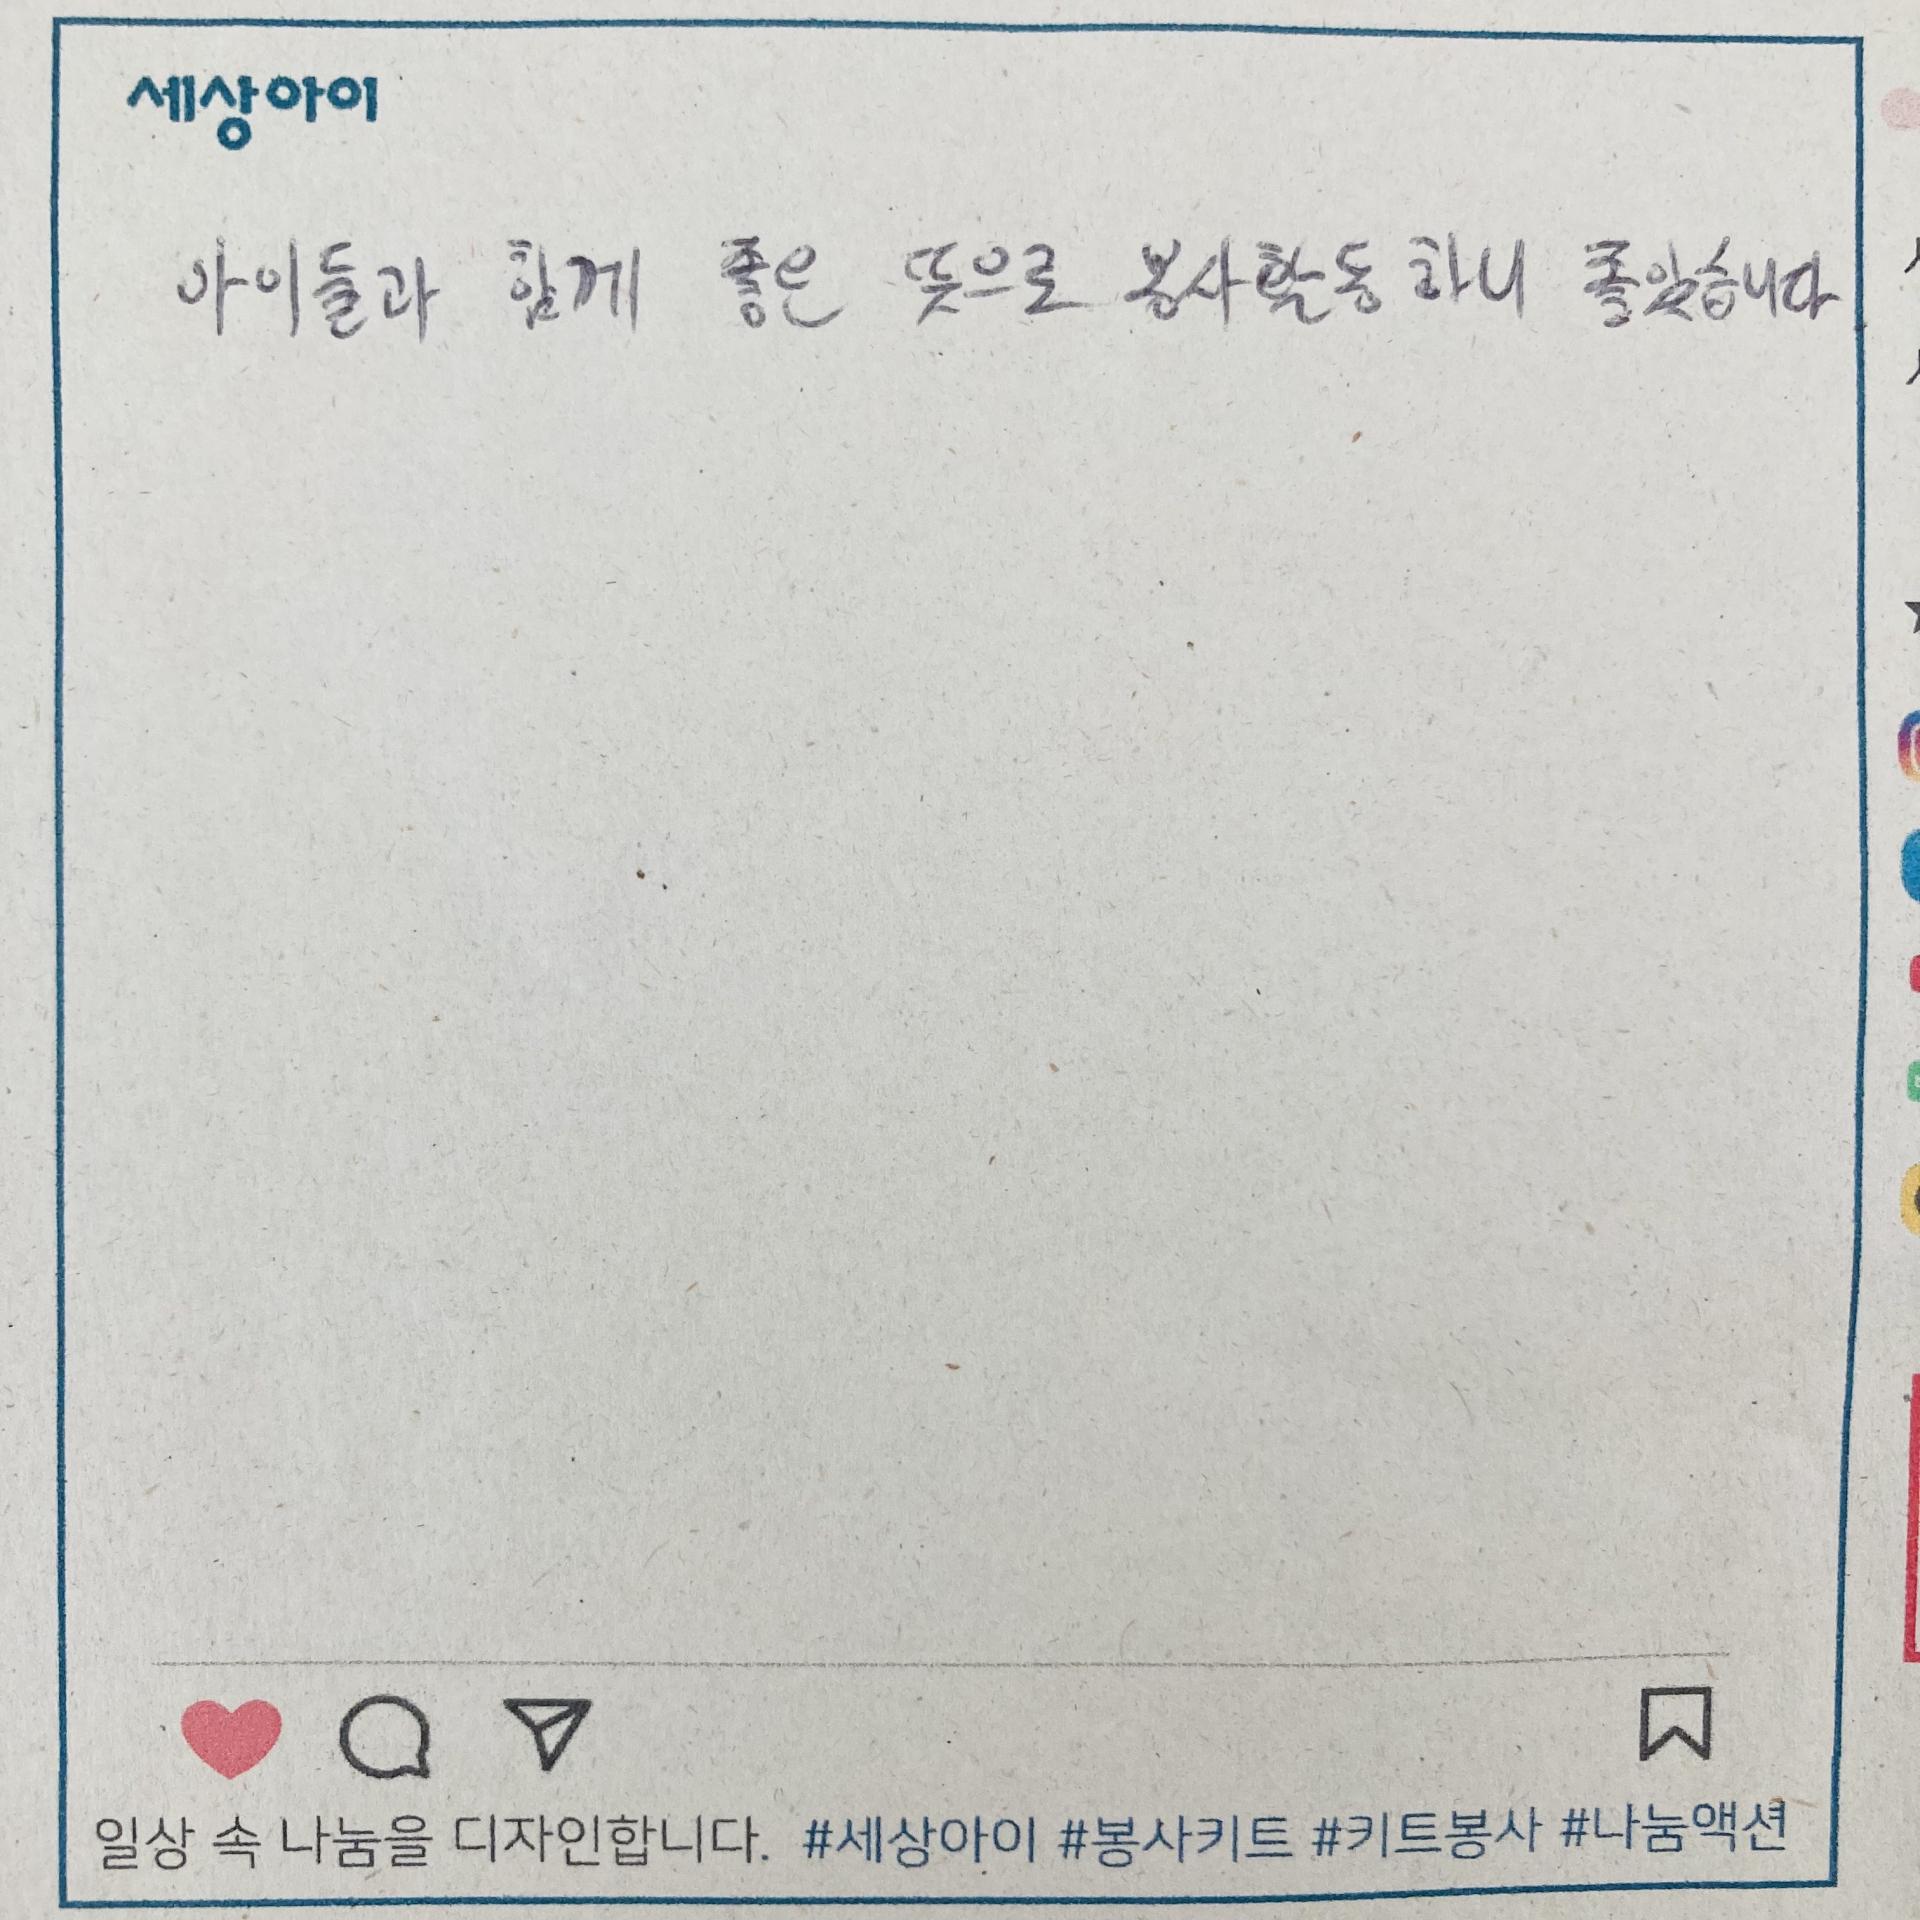 세상아이
아이들과 함께 좋은 뜻으로 봉사활동 하니 좋았습니다
일상 속 나눔을 디자인합니다. #세상아이 #봉사키트 #키트봉사 #나눔액션